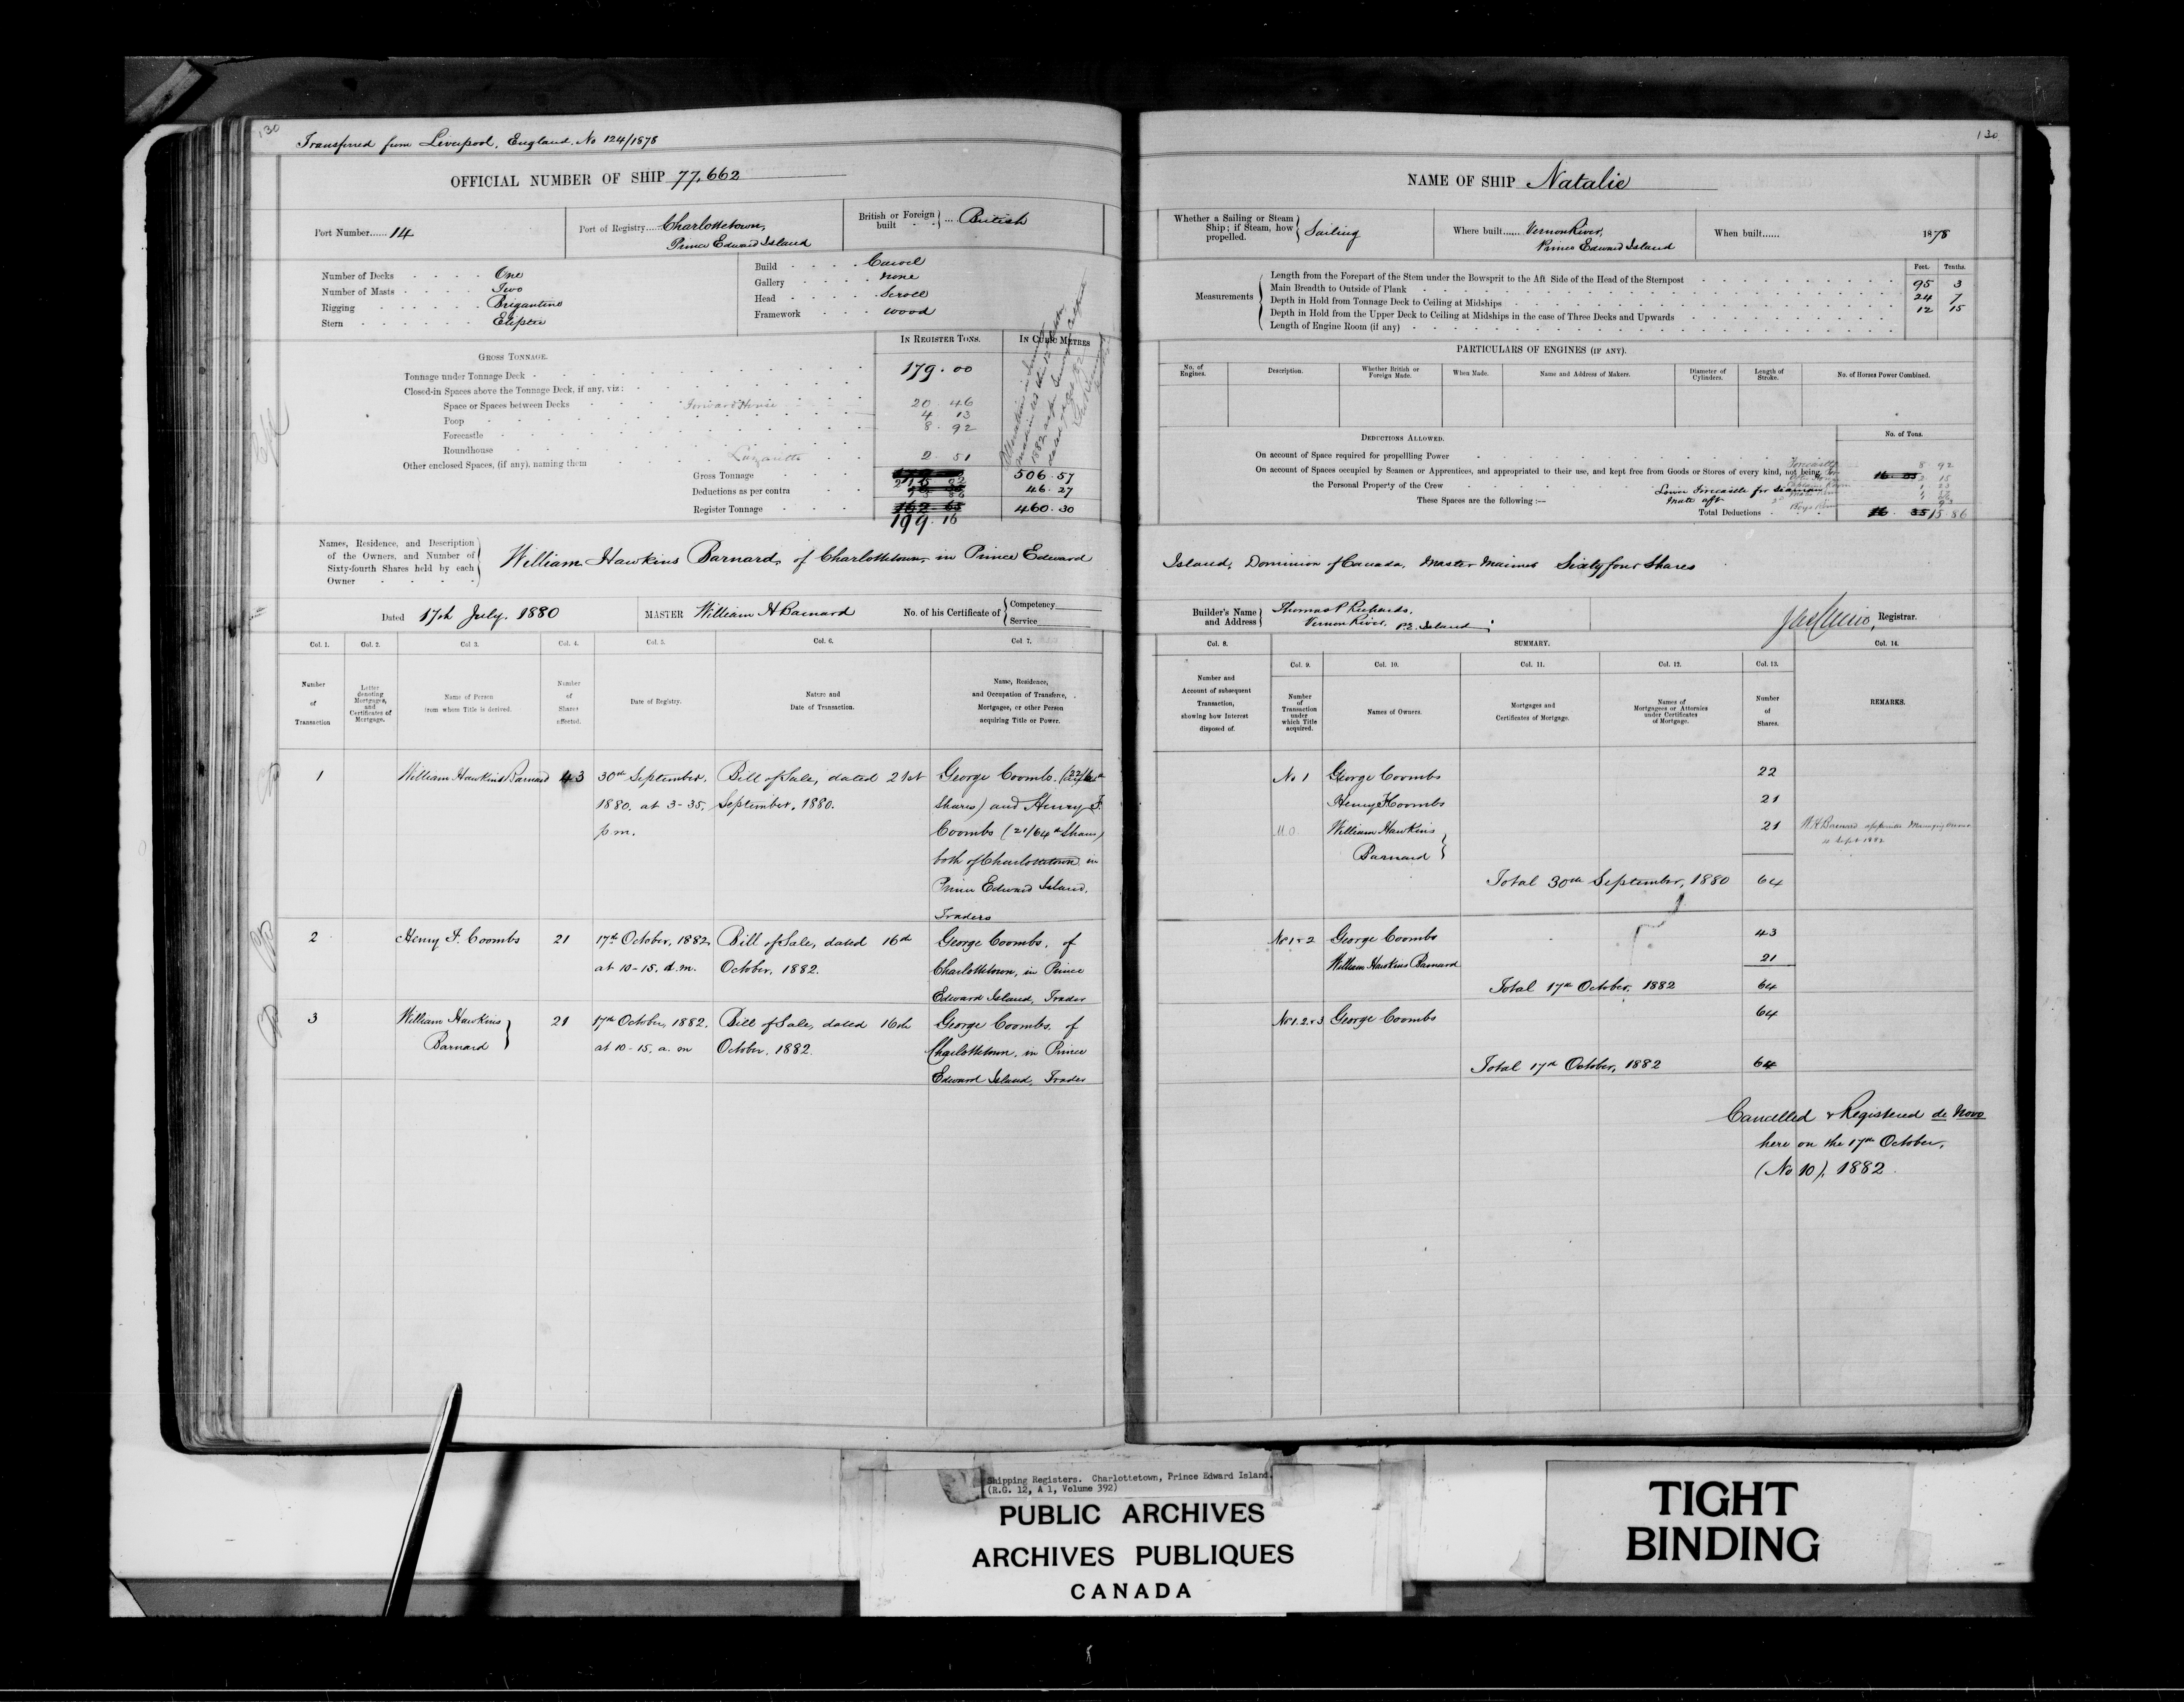 130
Transferred from Liverpool, England, No 124/1878
OFFICIAL NUMBER OF SHIP 77,662
Port Number...... 14
Port of Registry.... Charlottetown,
Prince Edward Island
British or Foreign built ... British
Number of Decks One
Number of Masts Two
Rigging Brigantine
Stern Eliptic
Build Carvel
Gallery none
Head Scroll
Framework wood
IN REGISTER TONS.
IN CUBIC METRES
GROSS TONNAGE.
Tonnage under Tonnage Deck 179.00
Closed-in Spaces above the Tonnage Deck, if any, viz:
Space or Spaces between Decks Forward House 20 46
Poop 4 13
Forecastle 8 92
Roundhouse
Other enclosed Spaces, (if any), naming them Lazarette 2 51
Gross Tonnage 506.57
Deductions as per contra 46.27
Register Tonnage 460.30
199.16
Names, Residence, and Description
of the Owners, and Number of
Sixty-fourth Shares held by each
Owner
William Hawkins Barnard, of Charlottetown in Prince Edward
Dated 17th July, 1880
MASTER William H Barnard
No. of his Certificate of Competency
Service
Col. 1. Col. 2. Col 3. Col. 4. Col. 5. Col. 6. Col. 7.
Number of Transaction
Letter denoting Mortgages, and Certificates of Mortgage.
Name of Person from whom Title is derived.
Number of Shares affected.
Date of Registry.
Nature and Date of Transaction.
Name, Residence, and Occupation of Transferee, Mortgagee, or other Person acquiring Title or Power.
1 William Hawkins Barnard 43 30th September, Bill of Sale, dated 21st George Coombs, (22/64th
1880. at 3-35. September, 1880. Shares) and Henry F.
p m. Coombs (21/64th Shares)
both of Charlottetown in
Prince Edward Island,
Traders
2 Henry F. Coombs 21 17th October, 1882, Bill of Sale, dated 16th George Coombs, of
at 10-15. a.m. October, 1882. Charlottetown, in Prince
Edward Island, Trader
3 William Hawkins 21 17th October, 1882. Bill of Sale, dated 16th George Coombs, of
Barnard at 10-15. a. m October, 1882. Charlottetown, in Prince
Edward Island, Trader
130
NAME OF SHIP Natalie
Whether a Sailing or Steam
Ship; if Steam, how
propelled. Sailing
Where built...... Vernon River,
Prince Edward Island
When built...... 1878
Feet. Tenths.
Measurements
Length from the Forepart of the Stem under the Bowsprit to the Aft Side of the Head of the Sternpost 95 3
Main Breadth to Outside of Plank 24 7
Depth in Hold from Tonnage Deck to Ceiling at Midships 12 15
Depth in Hold from the Upper Deck to Ceiling at Midships in the case of Three Decks and Upwards
Length of Engine Room (if any)
PARTICULARS OF ENGINES (IF ANY).
No. of Engines.
Description.
Whether British or Foreign Made.
When Made.
Name and Address of Makers.
Diameter of Cylinders.
Length of Stroke.
No. of Horses Power Combined.
DEDUCTIONS ALLOWED.
No. of Tons.
On account of Space required for propelling Power
On account of Spaces occupied by Seamen or Apprentices, and appropriated to their use, and kept free from Goods or Stores of every kind, not being
the Personal Property of the Crew
These Spaces are the following:—
Lower Forecastle for Seamen
Mate aft
Forecastle 8 92
Total Deductions 15 86
Island, Dominion of Canada, Master Mariner Sixty four Shares
Builder's Name
and Address
Thomas P Richards,
Vernon River, P.E. Island
Registrar.
Col. 8. SUMMARY. Col. 14.
Col. 9. Col. 10. Col. 11. Col. 12. Col. 13.
Number and Account of subsequent Transaction, showing how Interest disposed of.
Number of Transaction under which Title acquired.
Names of Owners.
Mortgages and Certificates of Mortgage.
Names of Mortgagees or Attornies under Certificates of Mortgage.
Number of Shares.
REMARKS.
No 1 George Coombs 22
Henry F Coombs 21
M.O. William Hawkins 21 W H Barnard appointed Managing Owner
Barnard 4 Sept 1882
Total 30th September, 1880 64
No 1 & 2 George Coombs 43
William Hawkins Barnard 21
Total 17th October, 1882 64
No 1. 2. & 3 George Coombs 64
Total 17th October, 1882 64
Cancelled & Registered de Novo
here on the 17th October,
(No 10), 1882.
Shipping Registers. Charlottetown, Prince Edward Island.
(R.G. 12, A 1, Volume 392)
PUBLIC ARCHIVES
ARCHIVES PUBLIQUES
CANADA
TIGHT
BINDING